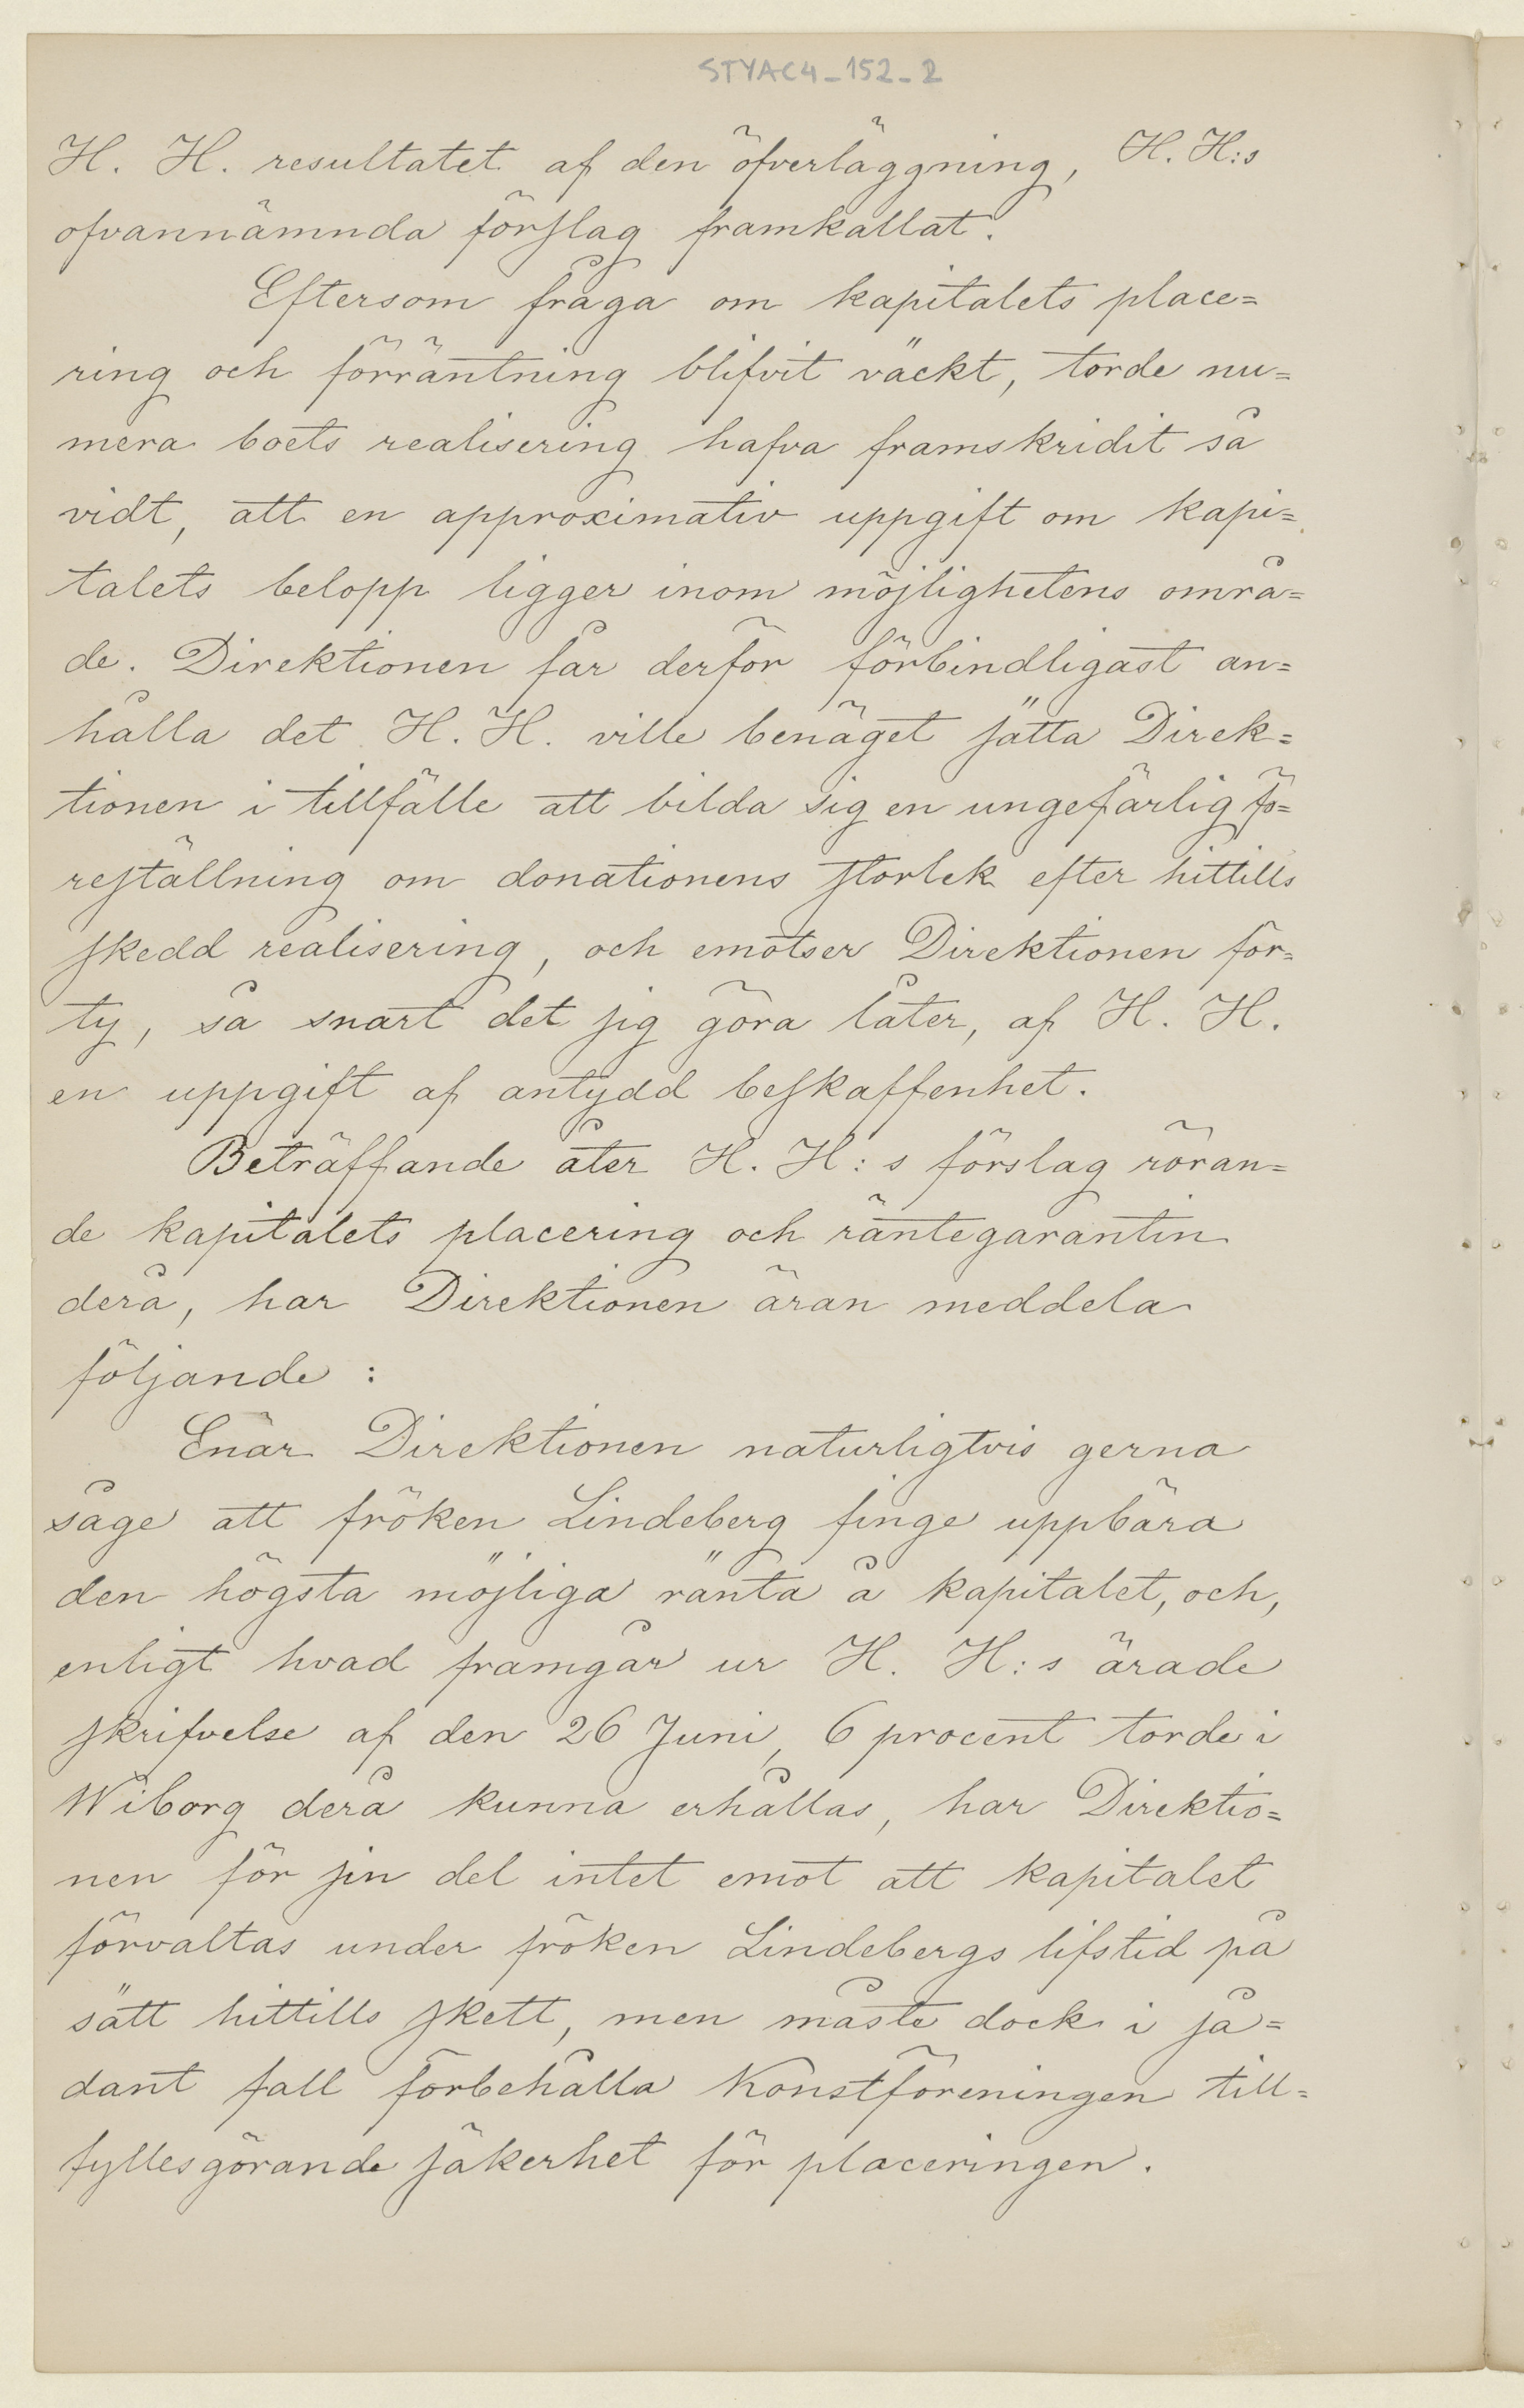 STYAC4_152_2
H. H. resultatet af den öfverläggning, H. H:s
ofvannämnda förslag framkallat.
Eftersom fråga om kapitalets place=
ring och förräntning blifvit väckt, torde nu=
mera boets realisering hafva framskridit så
vidt, att en approximativ uppgift om kapi=
talets belopp ligger inom möjlighetens områ=
de. Direktionen får derför förbindligast an=
hålla det H. H. ville benäget sätta Direk=
tionen i tillfälle att bilda sig en ungefärlig fö=
reställning om donationens storlek efter hittills
skedd realisering, och emotser Direktionen för=
ty, så snart det sig göra låter, af H. H.
en uppgift af antydd beskaffenhet.
Beträffande åter H. H:s förslag röran=
de kapitalets placering och räntegarantin
derå, har Direktionen äran meddela
följande:
Enär Direktionen naturligtvis gerna
såge att fröken Lindeberg finge uppbära
den högsta möjliga ränta å kapitalet, och,
enligt hvad framgår ur H. H:s ärade
skrifvelse af den 26 Juni, 6 procent torde i
Wiborg derå kunna erhållas, har Direktio=
nen för sin del intet emot att kapitalet
förvaltas under fröken Lindebergs lifstid på
sätt hittills skett, men måste dock i så=
dant fall förbehålla Konstföreningen till=
fyllesgörande säkerhet för placeringen.